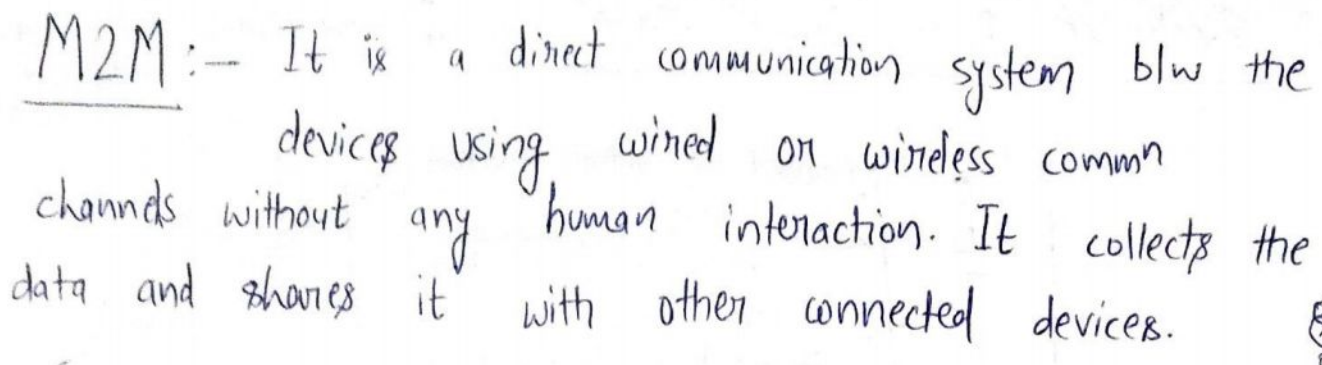 M2M :- It is a direct communication system b/w the
devices using wired or wireless commn
channels without any human interaction. It collects the
data and shares it with other connected devices.